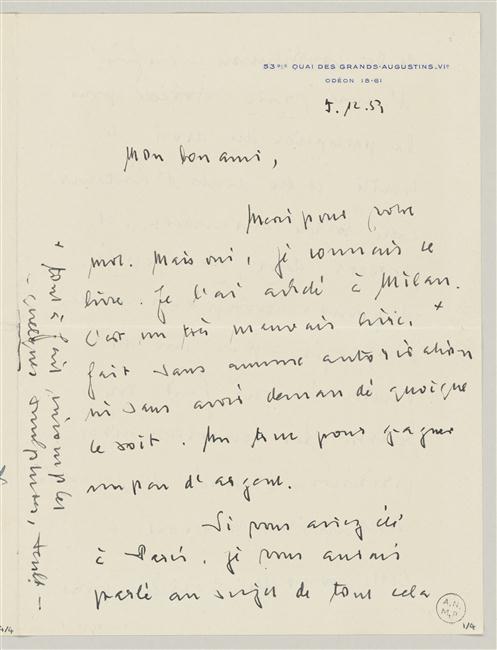 53 BIS QUAI DES GRANDS-AUGUSTINS_VIe
ODÉON 18-61
5.12.53
Mon bon ami,
Merci pour votre
mot. Mais oui, je connais ce
livre. Je l'ai acheté à Milan.
C'est un très mauvais +
fait sans aucune autorisation
ni sans avoir demandé quoique
ce soit. Un truc pour gagner
un peu d'argent.
Si vous aviez été
à Paris, je vous aurais
parlé au sujet de tout cela
+ tout à fait incomplet
- quelques sculptures,
A.N.
M.P.
1/4
4/4